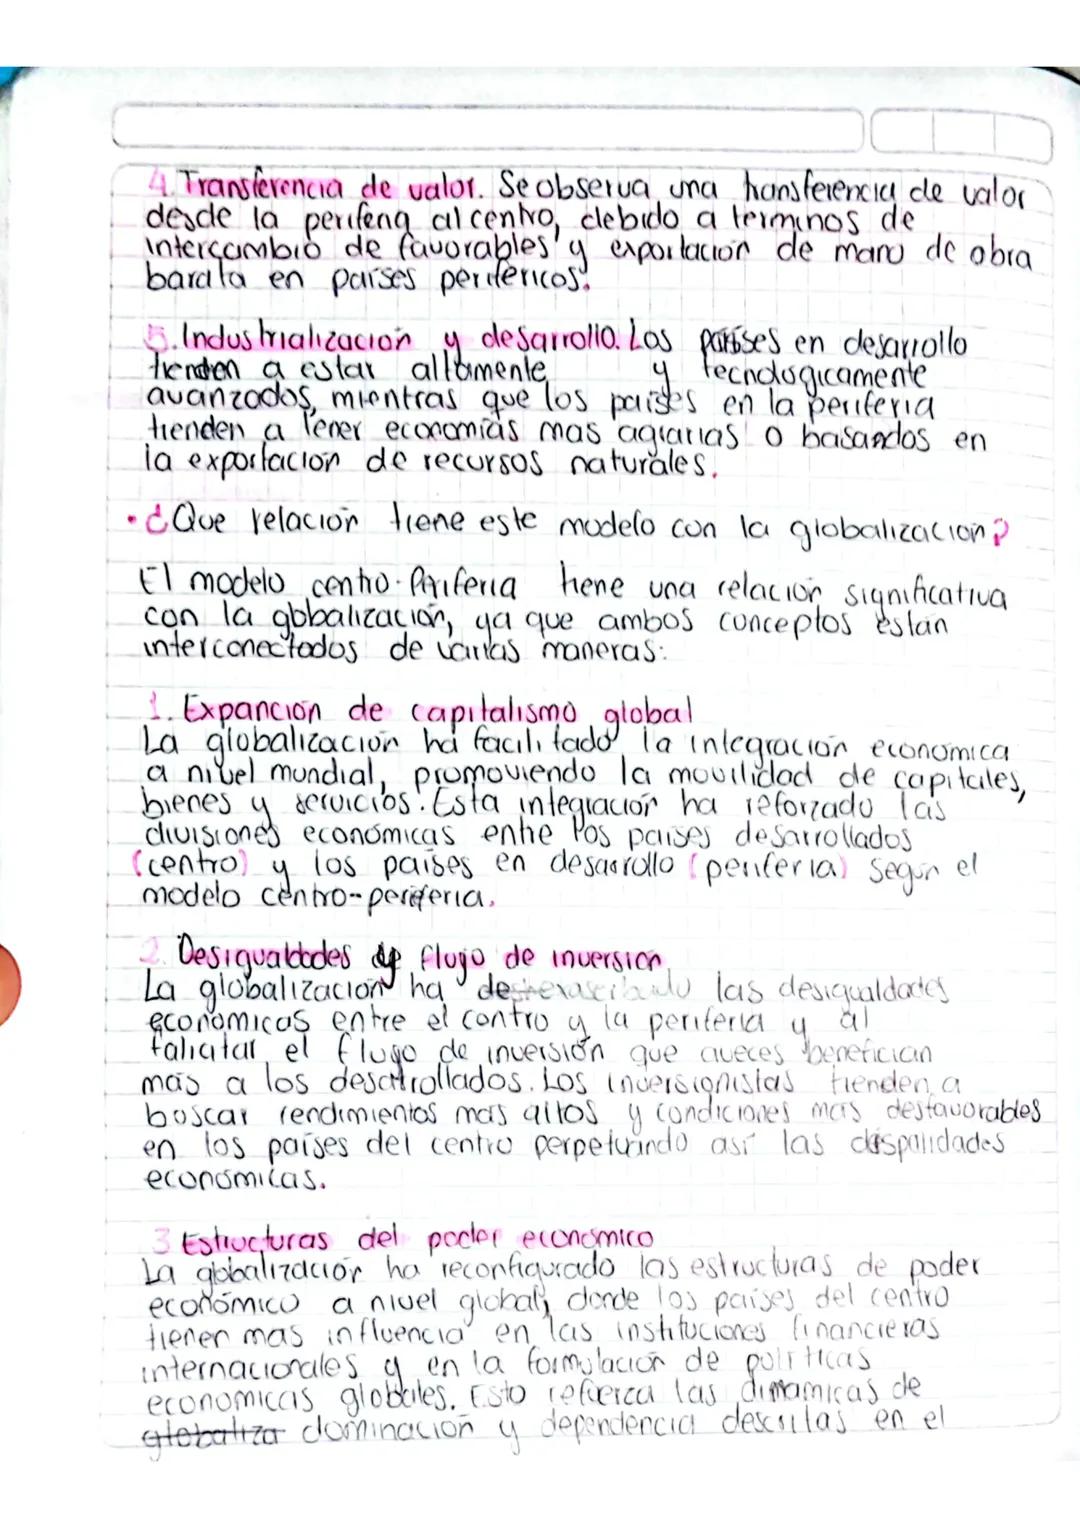 4. Transferencia de valor. Se observa una transferencia de valor
desde la periferia al centro, debido a terminos de
intercambio de favorables y exportación de mano de obra
barata en países periféricos.
5. Industrialización y desarrollo. Los países en desarrollo
tienden a estar altamente y tecnologicamente
avanzados, mientras que los países en la periferia
tienden a tener economías mas agrarias o basandos en
la exportación de recursos naturales.
• ¿Que relación tiene este modelo con la globalización?
El modelo centro-Periferia tiene una relación significativa
con la globalización, ya que ambos conceptos están
interconectados de varias maneras:
1. Expanción de capitalismo global
La globalización ha facilitado la integración económica
a nivel mundial, promoviendo la movilidad de capitales,
bienes y servicios. Esta integración ha reforzado las
divisiones económicas entre los países desarrollados
(centro) y los países en desarrollo (periferia) según el
modelo centro-periferia.
2. Desigualdades de flujo de inversión
La globalización ha las desigualdades
económicas entre el centro y la periferia y al
faliciatar el flujo de inversión que aveces benefician
más a los desarrollados. Los inversionistas tienden a
boscar rendimientos mas altos y condiciones mas desfavorables
en los países del centro perpetuando así las disparidades
económicas.
3 Estructuras del poder económico
La globalización ha reconfigurado las estructuras de poder
económico a nivel global, donde los países del centro
tienen mas influencia en las instituciones financieras
internacionales y en la formulación de políticas
económicas globales. Esto refuerza las dinamicas de
globaliza dominación y dependencia descritas en el